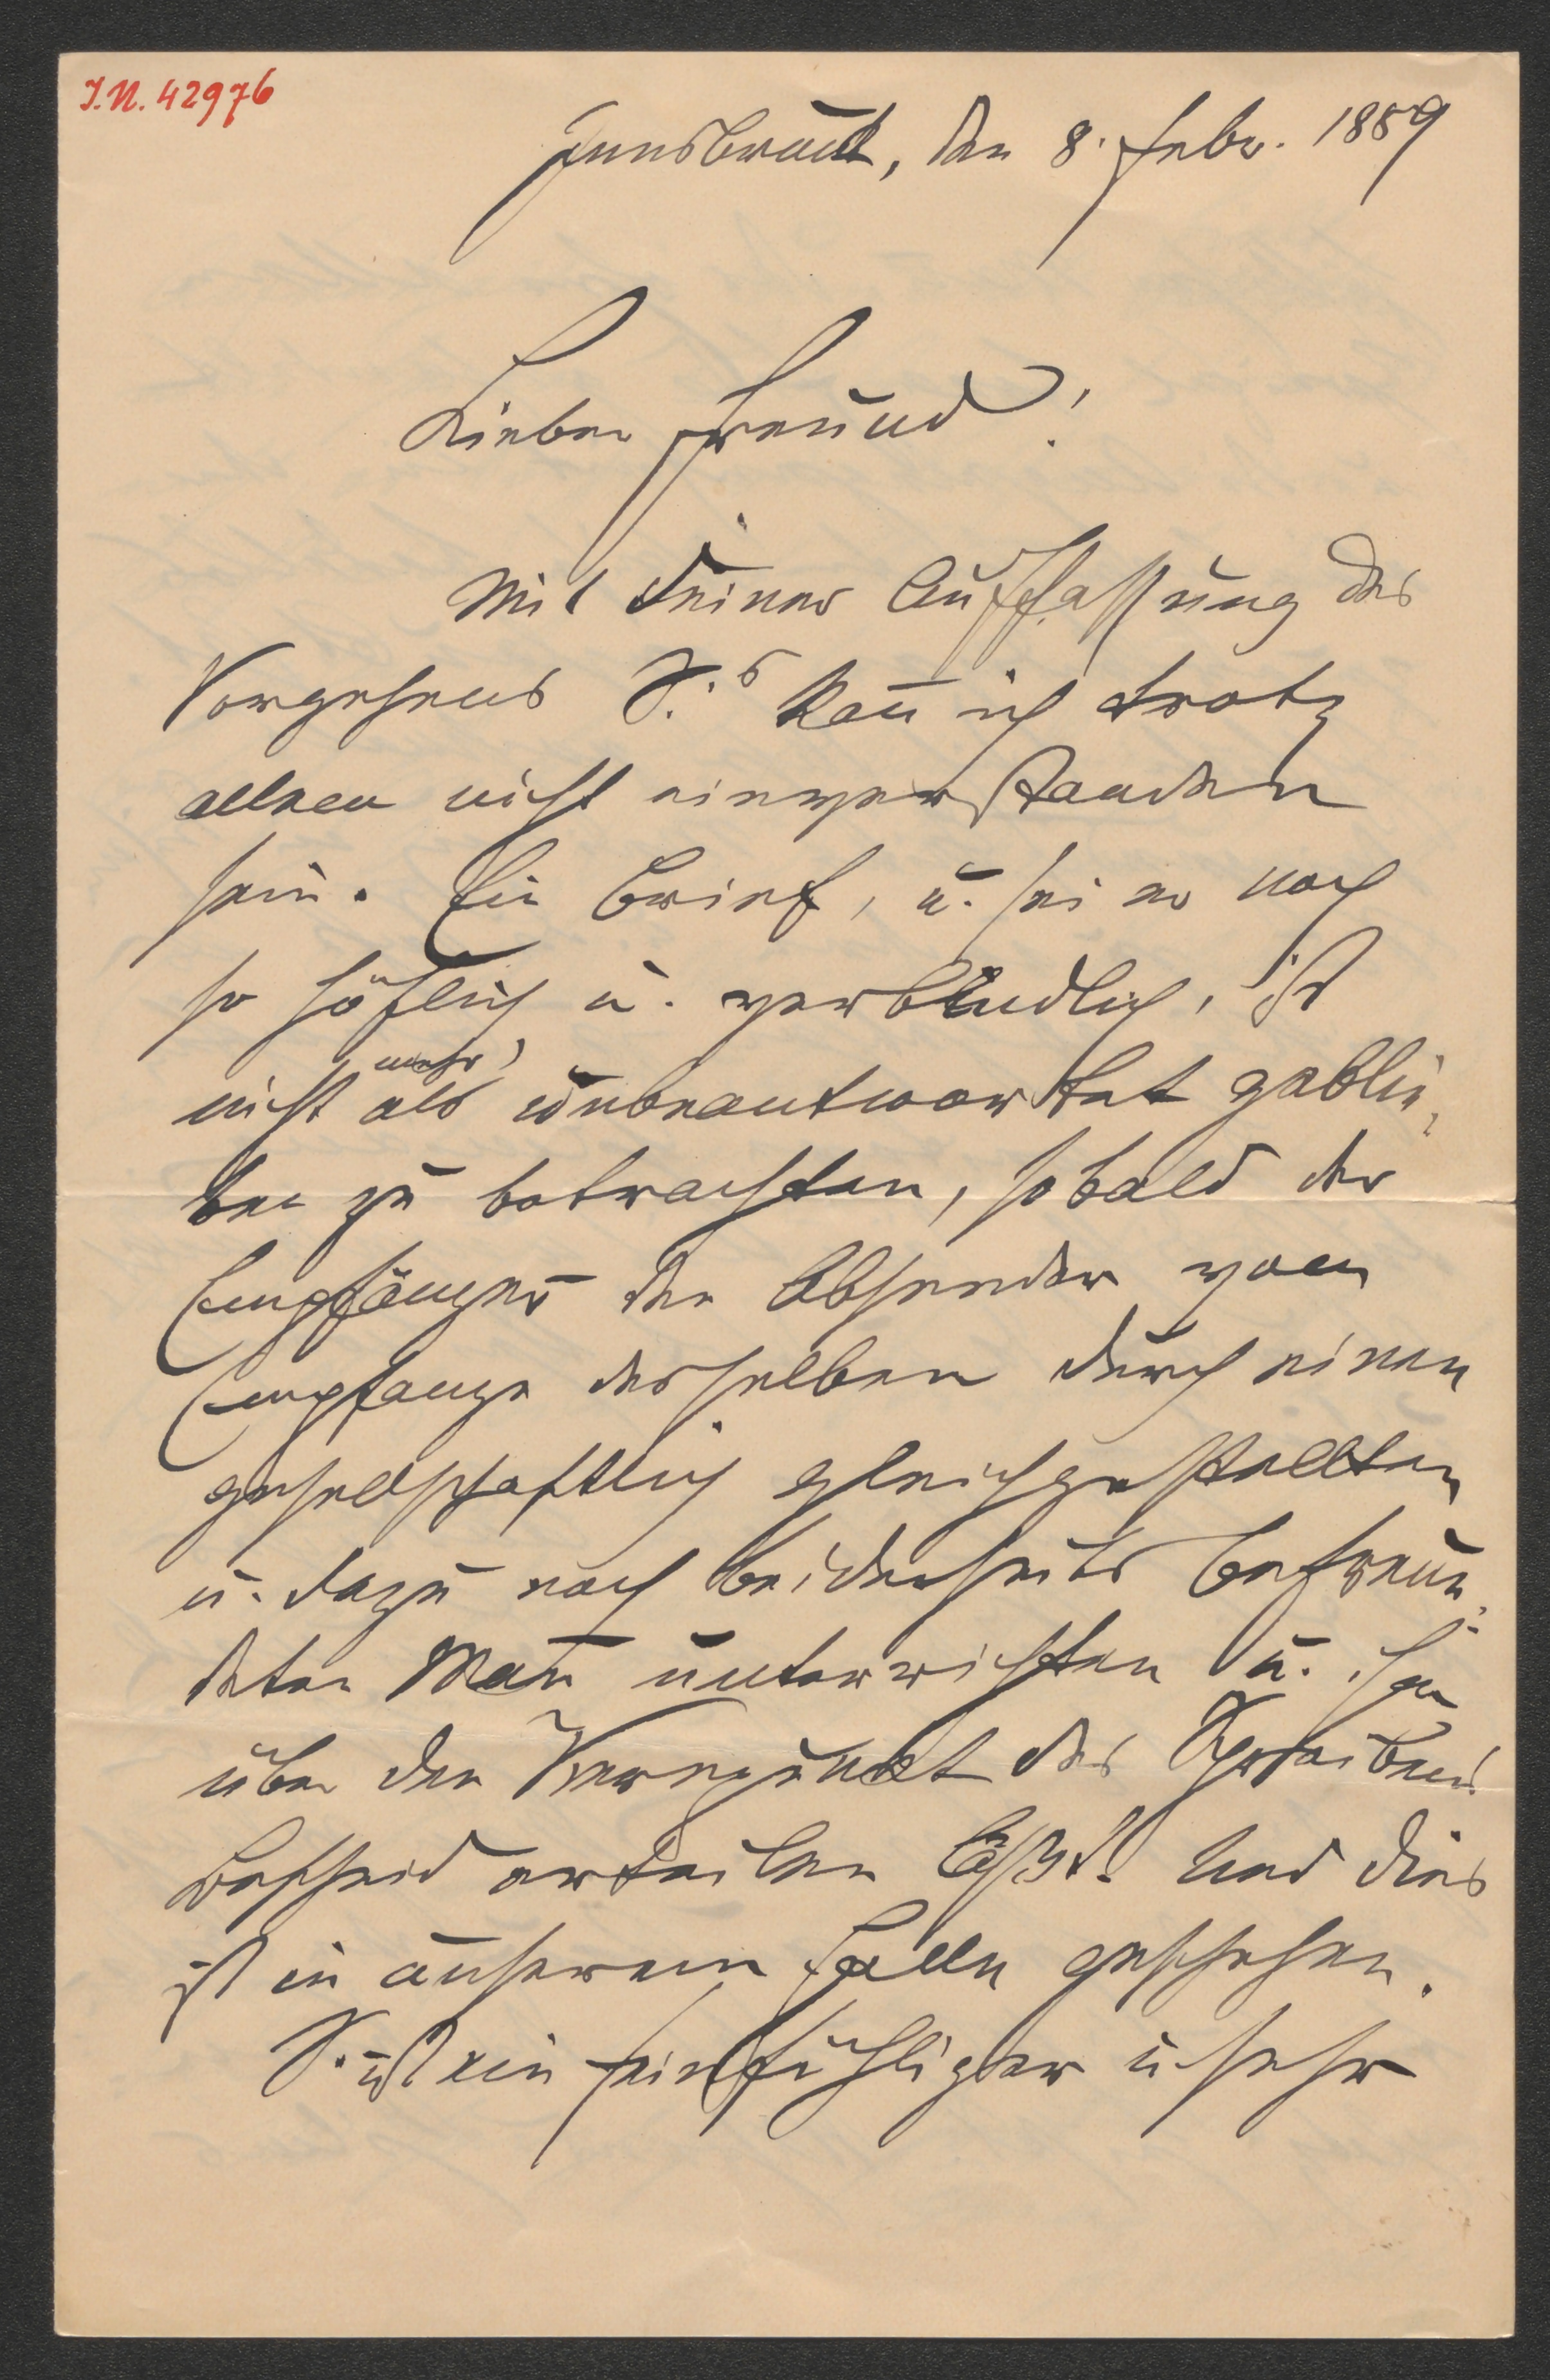 I.N. 42976
Innsbruck, den 8. Febr. 1889
Lieber Freund!
Mit Deiner Auffassung des
Vorgehens S.s kann ich trotz
allem nicht einverstanden
sein. Ein Brief, u. sei er noch
so höflich u. verbindlich, ist
nicht mehr als unbeantwortet geblie-
ben zu betrachten, sobald der
Empfänger den Absender vom
Empfange desselben durch einen
gesellschaftlich gleichgestellten
u. dazu noch beiderseits befreun-
deten Mann unterrichten u. ihm
über den Kernpunkt des Schreibens
Bescheid erteilen läßt. Und dies
ist in unserem Falle geschehen.
S. ist ein feinfühliger u sehr